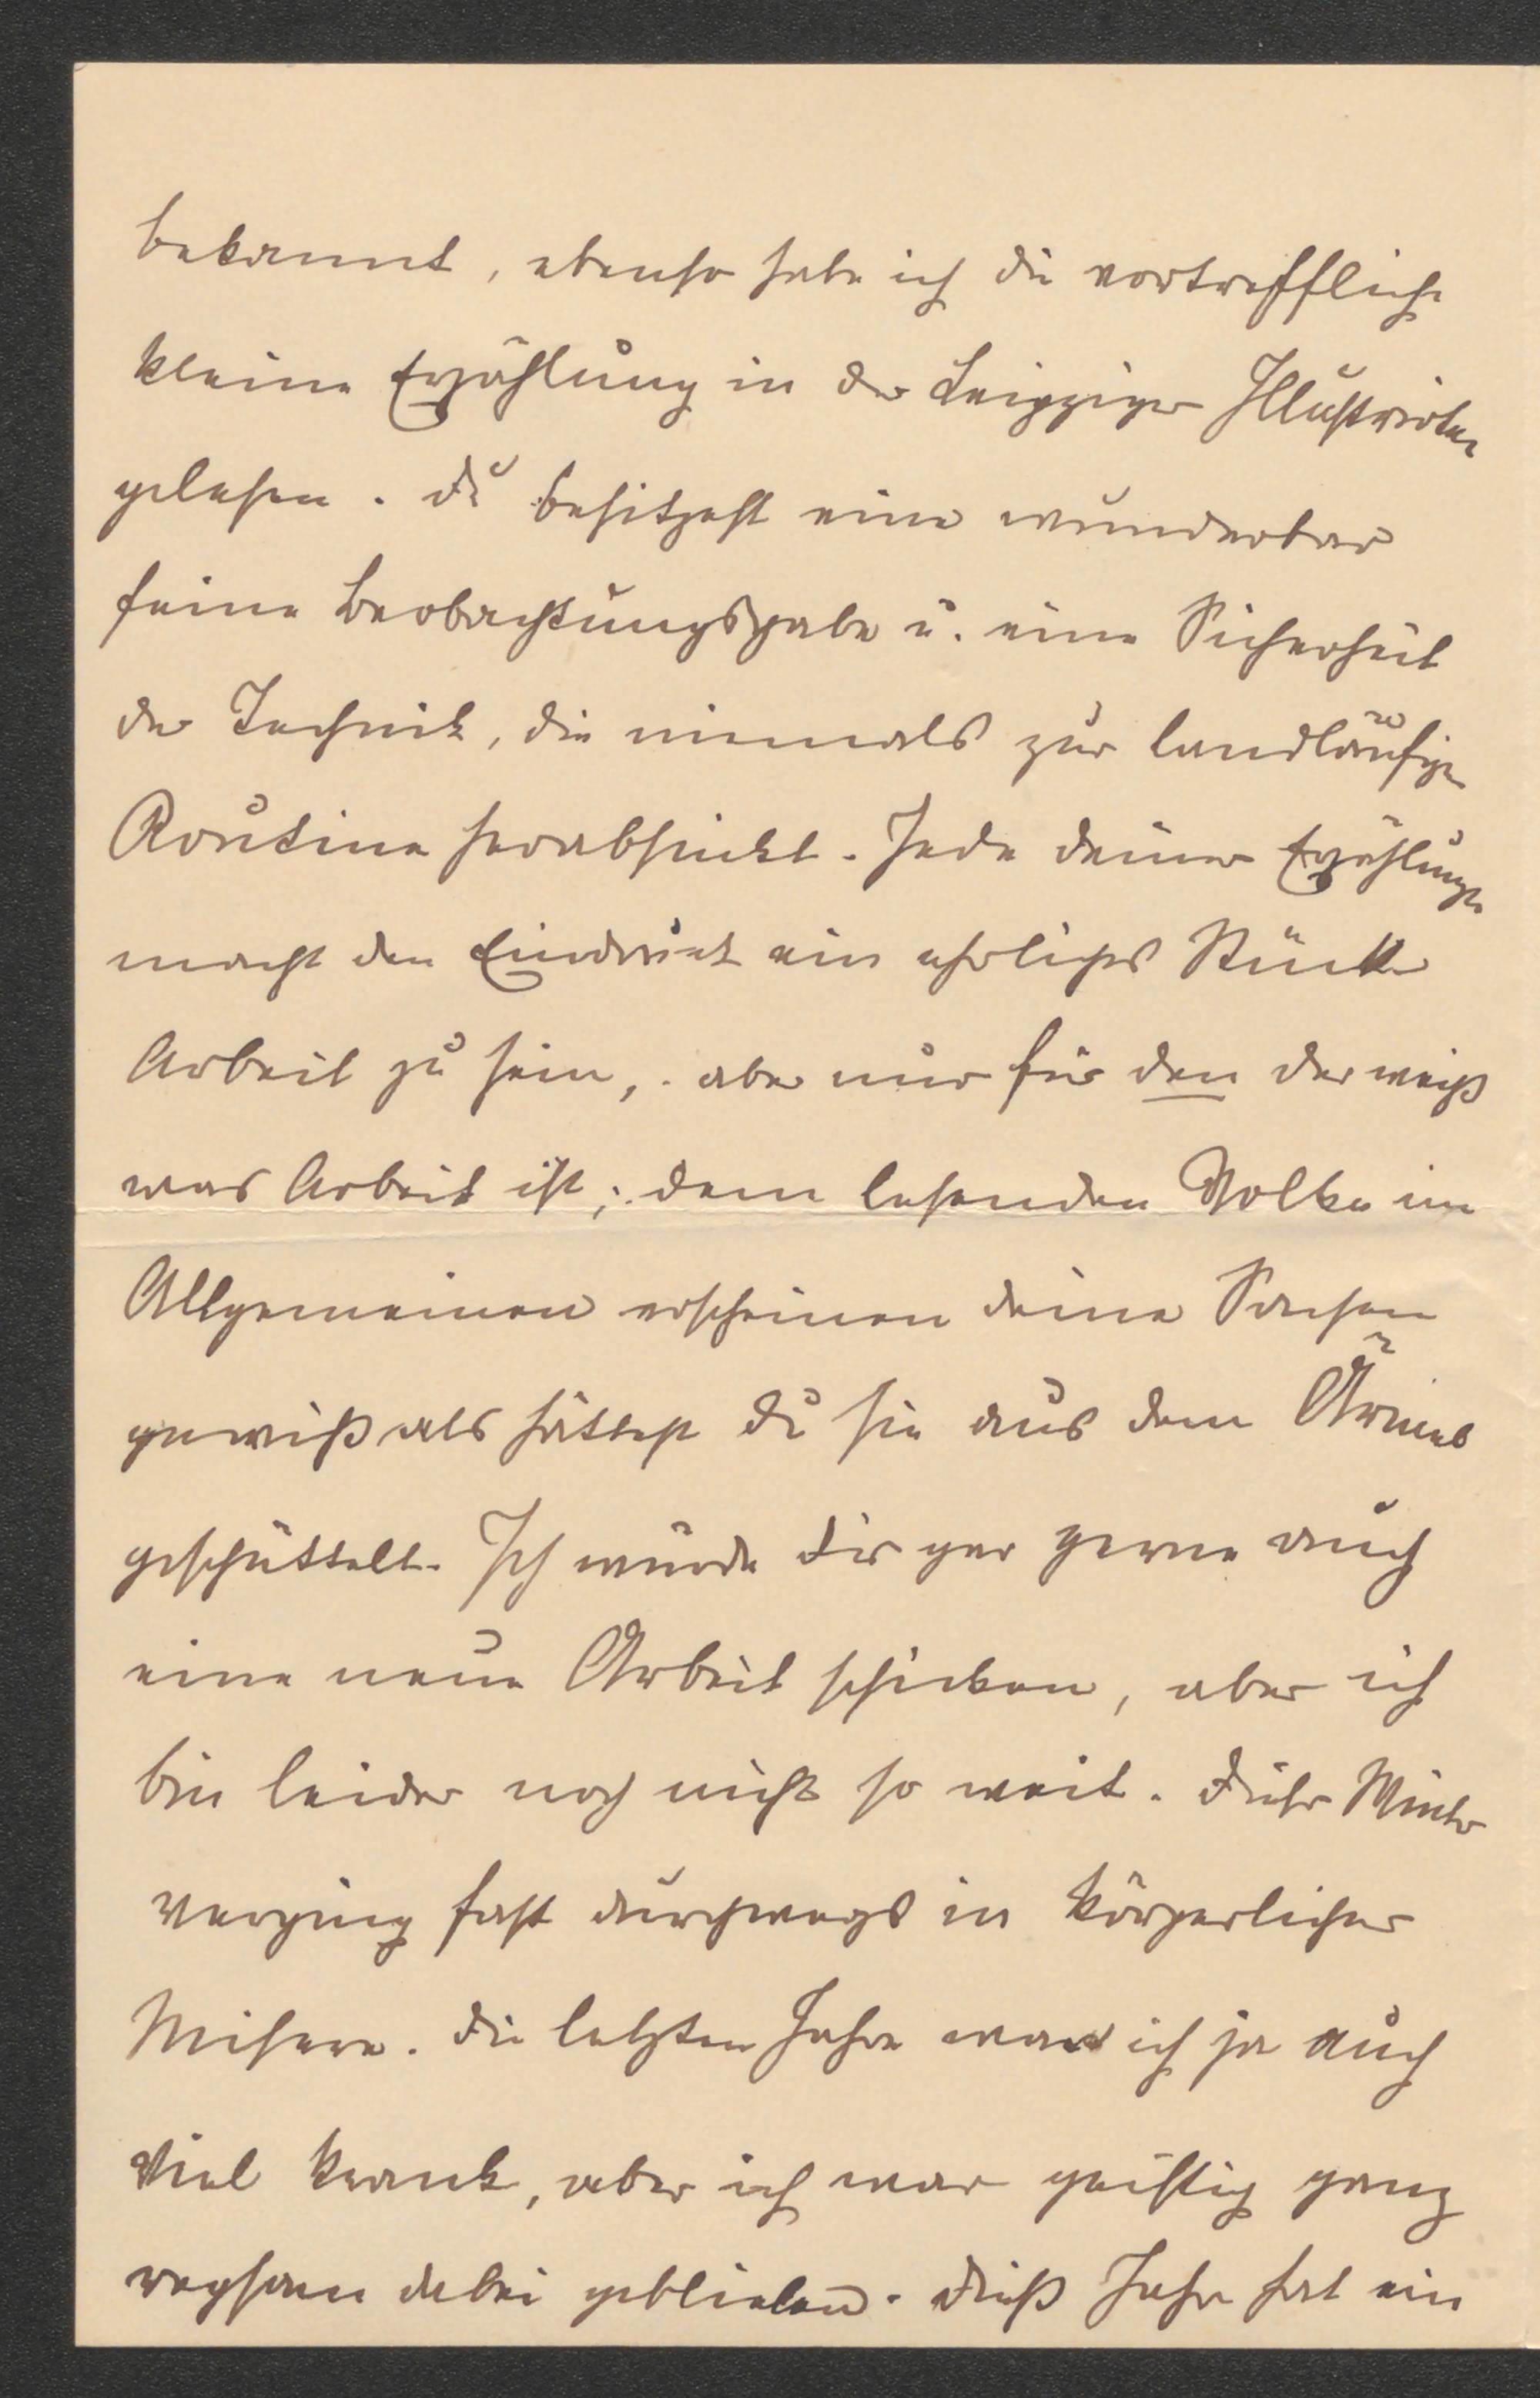 bekannt, ebenso habe ich die vortreffliche
kleine Erzählung in der Leipziger Illustrirten
gelesen. Du besitzest eine wunderbar
feine Beobachtungsgabe u. eine Sicherheit
der Technik, die niemals zur landläufigen
Routine herabsinkt. Jede deiner Erzählungen
macht den Eindruck ein ehrliches Stück
Arbeit zu sein, aber nur für den der weiß
was Arbeit ist; dem lesenden Volke im
Allgemeinen erscheinen deine Sachen
gewiß als hättest du sie aus dem Ärmel
geschüttelt. Ich würde dir gar gerne auch
eine neue Arbeit schicken, aber ich
bin leider noch nicht so weit. Dieser Winter
verging fast durchwegs in körperlicher
Misere. Die letzten Jahre war ich ja auch
viel krank, aber ich war geistig ganz
regsam dabei geblieben. Dieß Jahr hat ein